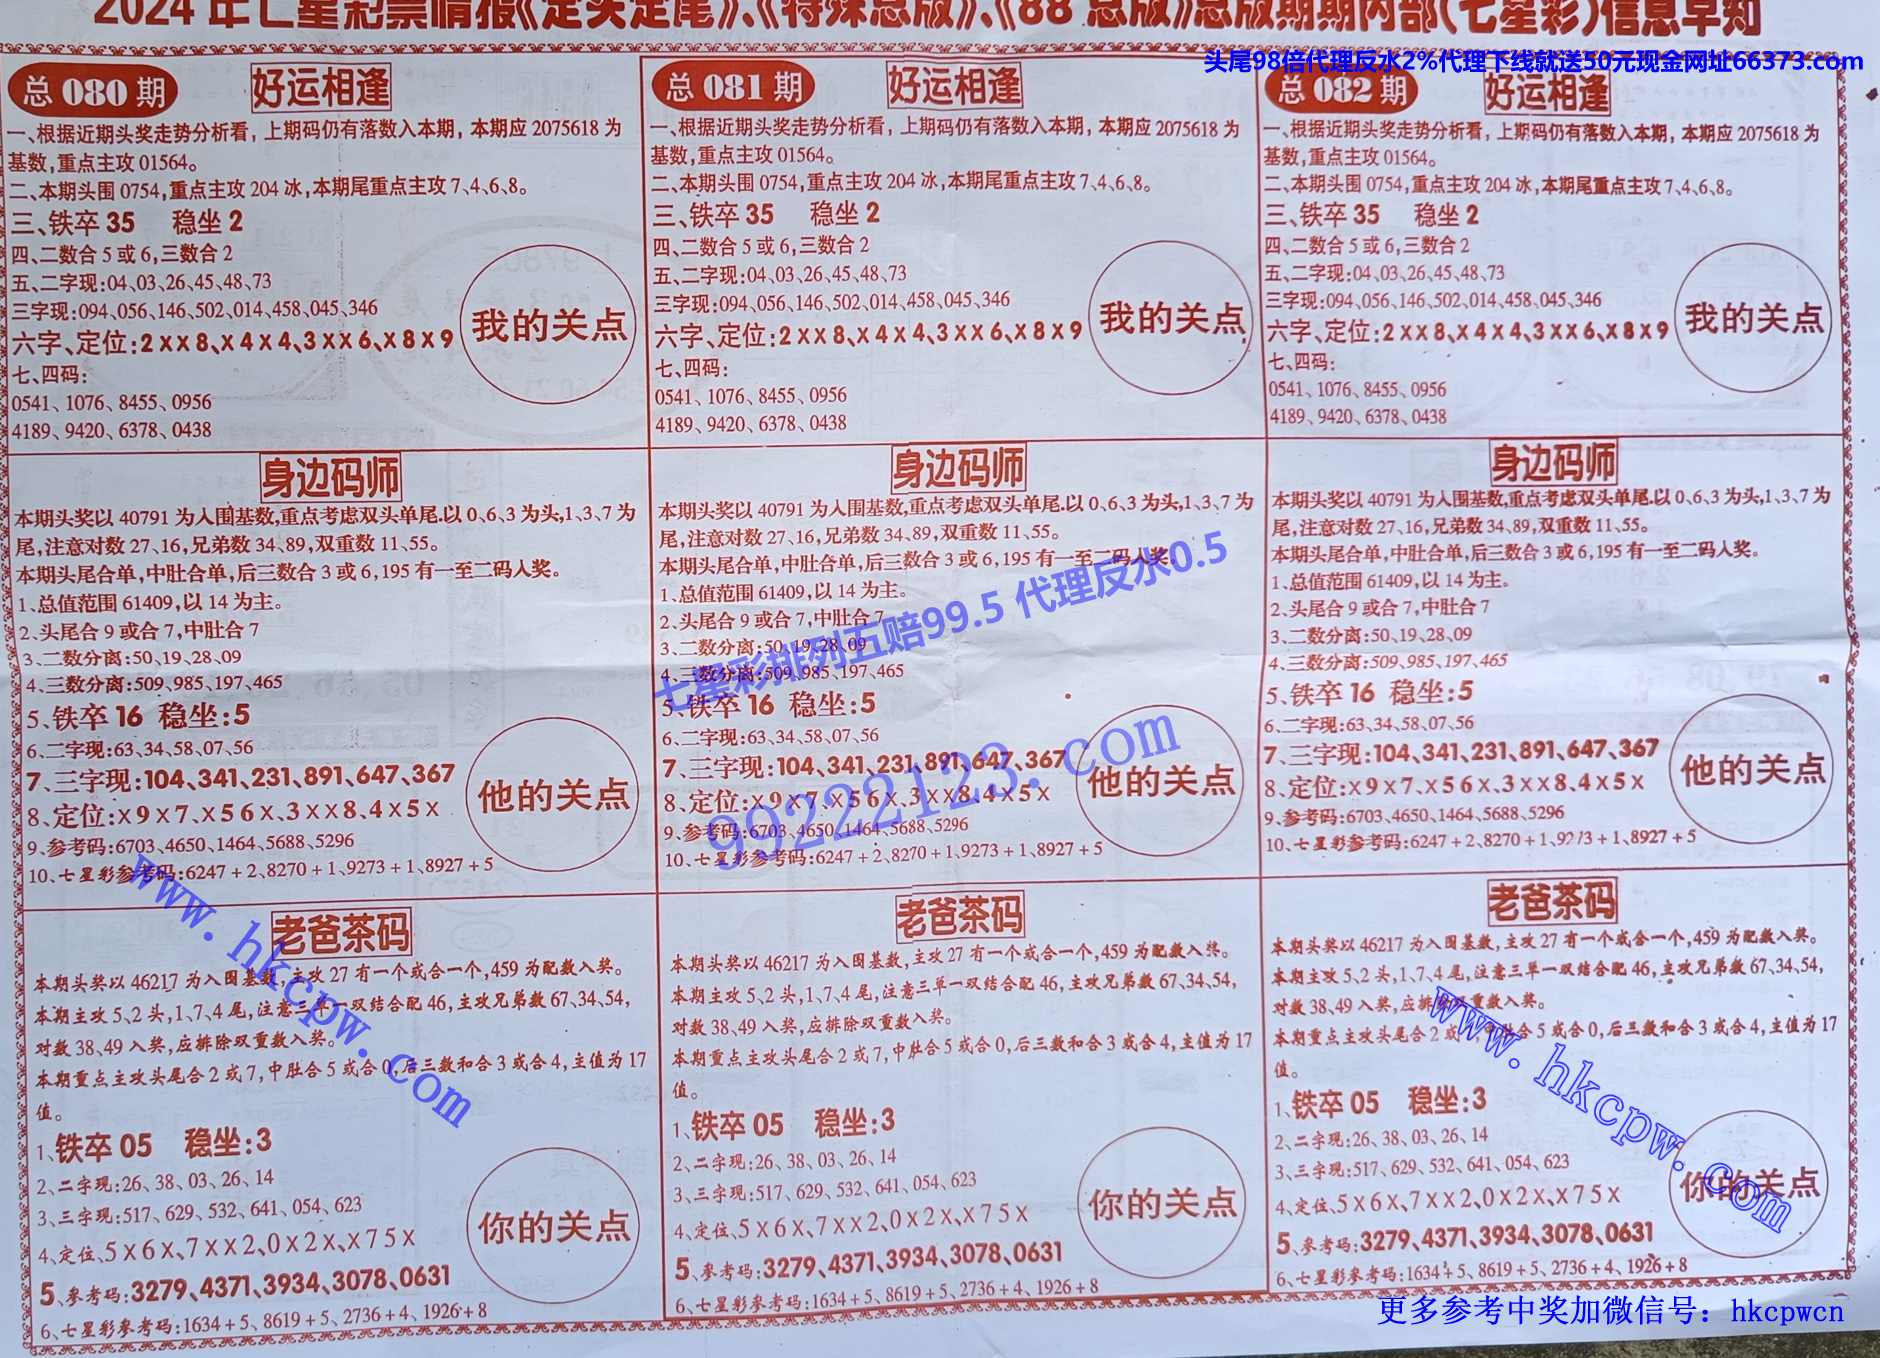 2024年七星彩票情报《定头定尾》、《特殊总版》、《88总版》总版期期内部(七星彩)信息早知
头尾98倍代理反水2%代理下线就送50元现金网址66373.com
总080期 好运相逢
一、根据近期头奖走势分析看,上期码仍有落数入本期,本期应2075618为
基数,重点主攻01564。
二、本期头围0754,重点主攻204冰,本期尾重点主攻7、4、6、8。
三、铁卒35 稳坐2
四、二数合5或6,三数合2
五、二字现:04、03、26、45、48、73
三字现:094、056、146、502、014、458、045、346
六字、定位:2××8、×4×4、3××6、×8×9
七、四码:
0541、1076、8455、0956
4189、9420、6378、0438
我的关点
身边码师
本期头奖以40791为入围基数,重点考虑双头单尾.以0、6、3为头,1、3、7为
尾,注意对数27、16,兄弟数34、89,双重数11、55。
本期头尾合单,中肚合单,后三数合3或6,195有一至二码人奖。
1、总值范围61409,以14为主。
2、头尾合9或合7,中肚合7
3、二数分离:50、19、28、09
4、三数分离:509、985、197、465
5、铁卒16 稳坐:5
6、二字现:63、34、58、07、56
7、三字现:104、341、231、891、647、367
8、定位:×9×7、×56×、3××8、4×5×
9、参考码:6703、4650、1464、5688、5296
10、七星彩参考码:6247+2、8270+1、9273+1、8927+5
他的关点
老爸茶码
本期头奖以46217为入围基数,主攻27有一个或合一个,459为配数入奖。
本期主攻5、2头,1、7、4尾,注意三单一双结合配46,主攻兄弟数67、34、54,
对数38、49入奖,应排除双重数入奖。
本期重点主攻头尾合2或7,中肚合5或合0,后三数和合3或合4,主值为17
值。
1、铁卒05 稳坐:3
2、二字现:26、38、03、26、14
3、三字现:517、629、532、641、054、623
4、定位、5×6×、7××2、0×2×、×75×
5、参考码:3279、4371、3934、3078、0631
6、七星彩参考码:1634+5、8619+5、2736+4、1926+8
你的关点
总081期 好运相逢
一、根据近期头奖走势分析看,上期码仍有落数入本期,本期应2075618为
基数,重点主攻01564。
二、本期头围0754,重点主攻204冰,本期尾重点主攻7、4、6、8。
三、铁卒35 稳坐2
四、二数合5或6,三数合2
五、二字现:04、03、26、45、48、73
三字现:094、056、146、502、014、458、045、346
六字、定位:2××8、×4×4、3××6、×8×9
七、四码:
0541、1076、8455、0956
4189、9420、6378、0438
我的关点
身边码师
本期头奖以40791为入围基数,重点考虑双头单尾.以0、6、3为头,1、3、7为
尾,注意对数27、16,兄弟数34、89,双重数11、55。
本期头尾合单,中肚合单,后三数合3或6,195有一至二码人奖。
1、总值范围61409,以14为主。
2、头尾合9或合7,中肚合7
3、二数分离:50、19、28、09
4、三数分离:509、985、197、465
5、铁卒16 稳坐:5
6、二字现:63、34、58、07、56
7、三字现:104、341、231、891、647、367
8、定位:×9×7、×56×、3××8、4×5×
9、参考码:6703、4650、1464、5688、5296
10、七星彩参考码:6247+2、8270+1、9273+1、8927+5
他的关点
老爸茶码
本期头奖以46217为入围基数,主攻27有一个或合一个,459为配数入奖。
本期主攻5、2头,1、7、4尾,注意三单一双结合配46,主攻兄弟数67、34、54,
对数38、49入奖,应排除双重数入奖。
本期重点主攻头尾合2或7,中肚合5或合0,后三数和合3或合4,主值为17
值。
1、铁卒05 稳坐:3
2、二字现:26、38、03、26、14
3、三字现:517、629、532、641、054、623
4、定位、5×6×、7××2、0×2×、×75×
5、参考码:3279、4371、3934、3078、0631
6、七星彩参考码:1634+5、8619+5、2736+4、1926+8
你的关点
总082期 好运相逢
一、根据近期头奖走势分析看,上期码仍有落数入本期,本期应2075618为
基数,重点主攻01564。
二、本期头围0754,重点主攻204冰,本期尾重点主攻7、4、6、8。
三、铁卒35 稳坐2
四、二数合5或6,三数合2
五、二字现:04、03、26、45、48、73
三字现:094、056、146、502、014、458、045、346
六字、定位:2××8、×4×4、3××6、×8×9
七、四码:
0541、1076、8455、0956
4189、9420、6378、0438
我的关点
身边码师
本期头奖以40791为入围基数,重点考虑双头单尾.以0、6、3为头,1、3、7为
尾,注意对数27、16,兄弟数34、89,双重数11、55。
本期头尾合单,中肚合单,后三数合3或6,195有一至二码入奖。
1、总值范围61409,以14为主。
2、头尾合9或合7,中肚合7
3、二数分离:50、19、28、09
4、三数分离:509、985、197、465
5、铁卒16 稳坐:5
6、二字现:63、34、58、07、56
7、三字现:104、341、231、891、647、367
8、定位:×9×7、×56×、3××8、4×5×
9、参考码:6703、4650、1464、5688、5296
10、七星彩参考码:6247+2、8270+1、92/3+1、8927+5
他的关点
老爸茶码
本期头奖以46217为入围基数,主攻27有一个或合一个,459为配数入奖。
本期主攻5、2头,1、7、4尾,注意三单一双结合配46,主攻兄弟数67、34、54,
对数38、49入奖,应排除双重数入奖。
本期重点主攻头尾合2或7,中肚合5或合0,后三数和合3或合4,主值为17
值。
1、铁卒05 稳坐:3
2、二字现:26、38、03、26、14
3、三字现:517、629、532、641、054、623
4、定位、5×6×、7××2、0×2×、×75×
5、参考码:3279、4371、3934、3078、0631
6、七星彩参考码:1634+5、8619+5、2736+4、1926+8
你的关点
七星彩排列五赔99.5 代理反水0.5
99222123.com
www.hkcpw.com
www.hkcpw.com
更多参考中奖加微信号:hkcpwcn